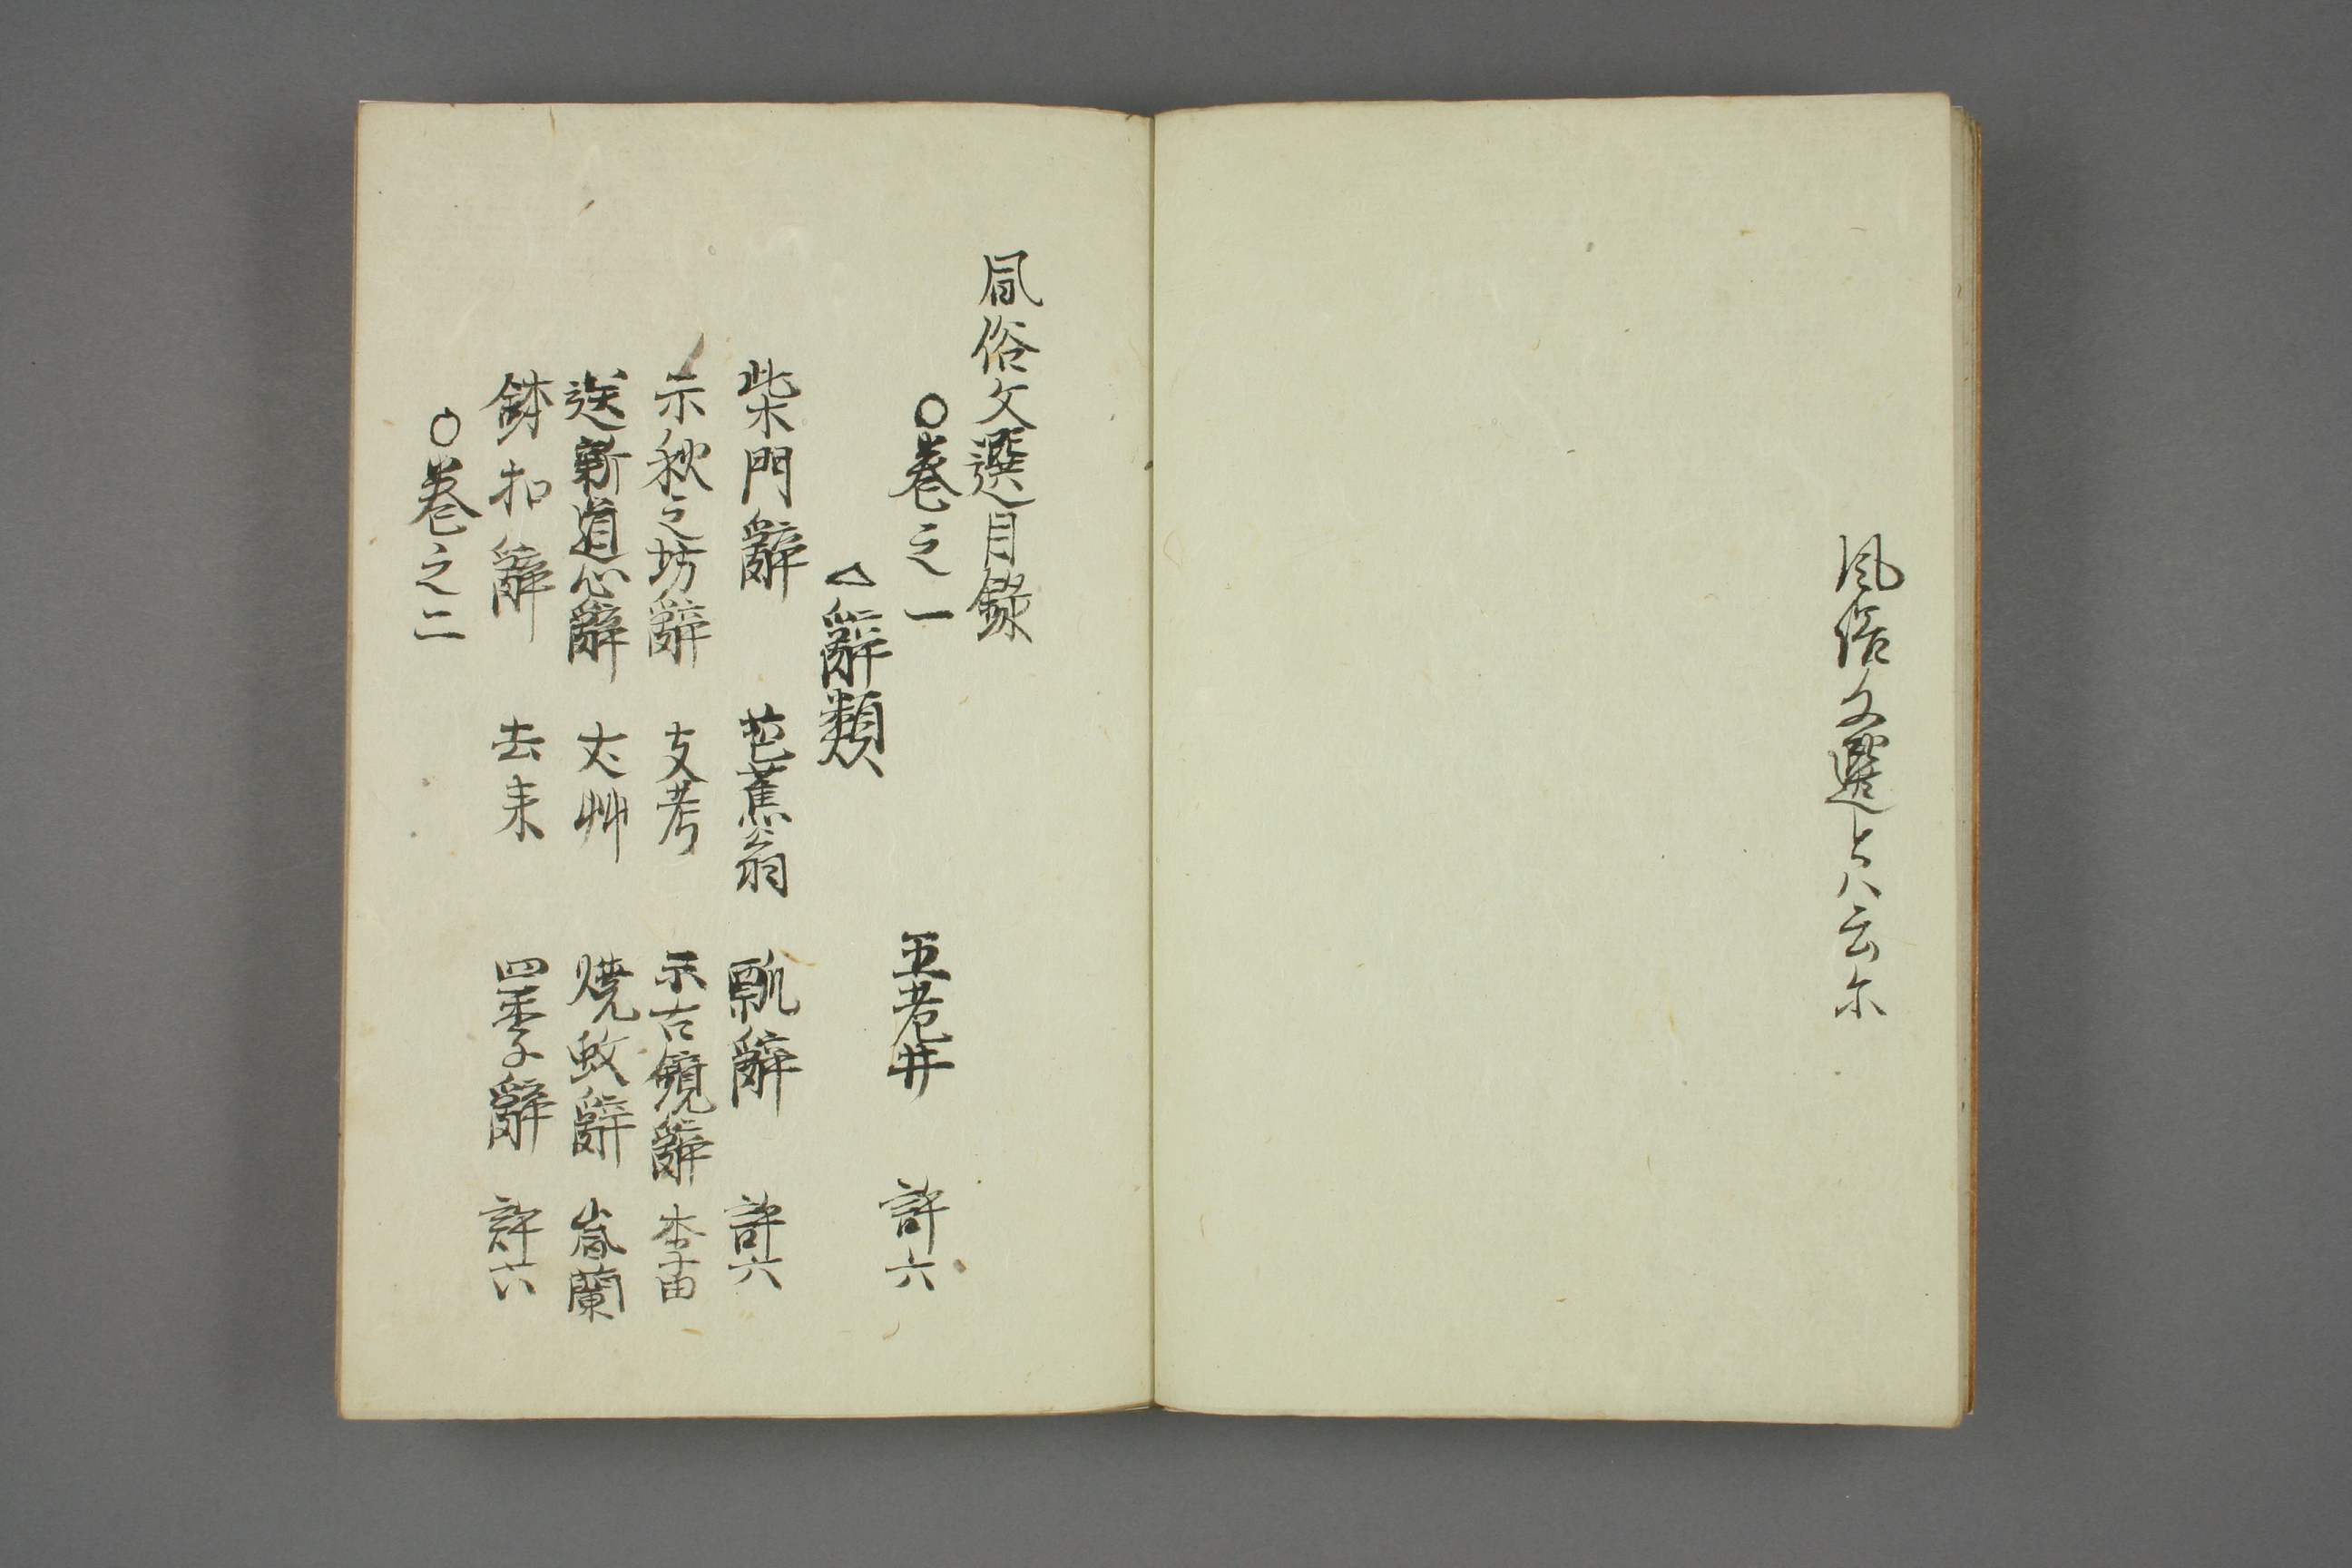 風俗文選とハ云尓
風俗文選目録
○巻之一 五老井 許六
△辭類
柴門辭 芭蕉翁 瓢辭 許六
示秋之坊辭 支考 示古鏡辭 李由
送新道心辭 丈艸 焼蚊辭 嵐蘭
鉢扣辭 去来 四季辭 許六
○巻之二